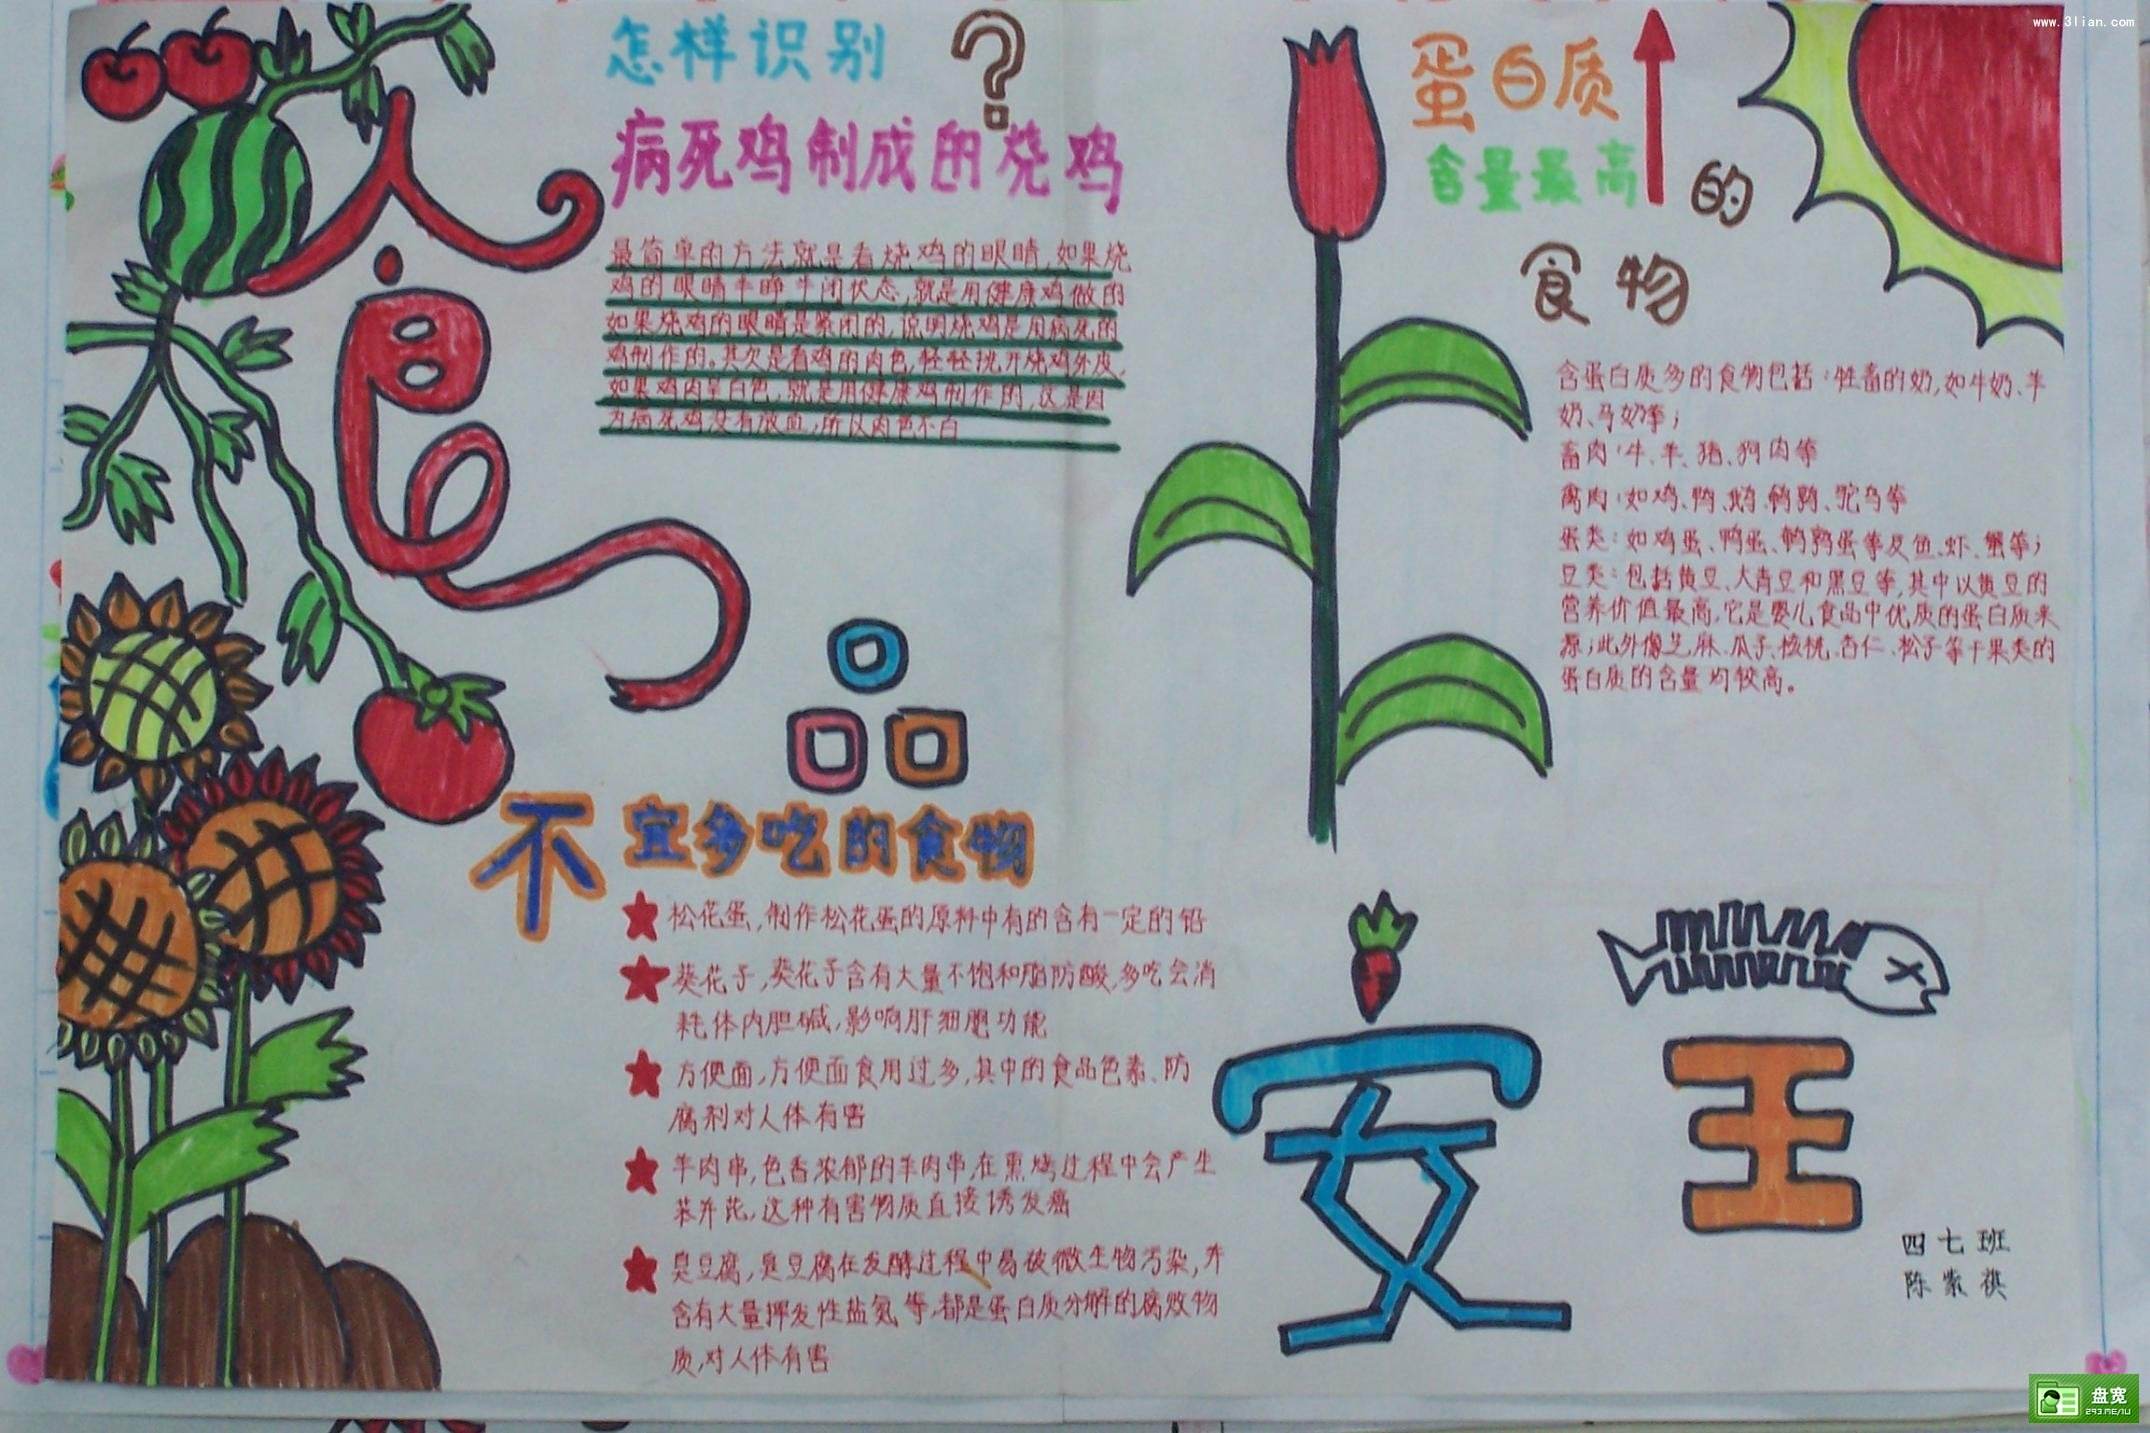 www.3lian.com
食品安全
怎样识别?
病死鸡制成的烧鸡
最简单的方法就是看烧鸡的眼睛,如果烧
鸡的眼睛半睁半闭状态,就是用健康鸡做的
如果烧鸡的眼睛是紧闭的,说明烧鸡是用病死的
鸡制作的。其次是看鸡的肉色,轻轻挑开烧鸡外皮,
如果鸡肉呈白色,就是用健康鸡制作的,这是因
为病死鸡没有放血,所以肉色不白
不宜多吃的食物
松花蛋,制作松花蛋的原料中有的含有一定的铅
葵花子,葵花子含有大量不饱和脂防酸,多吃会消
耗体内胆碱,影响肝细胞功能
方便面,方便面食用过多,其中的食品色素、防
腐剂对人体有害
羊肉串,色香浓郁的羊肉串,在熏烤过程中会产生
苯并芘,这种有害物质直接诱发癌
臭豆腐,臭豆腐在发酵过程中易被微生物污染,并
含有大量挥发性盐氨等,都是蛋白质分解的腐败物
质,对人体有害
蛋白质
含量最高的
食物
含蛋白质多的食物包括:牲畜的奶,如牛奶、羊
奶、马奶等;
畜肉:牛、羊、猪、狗肉等
禽肉:如鸡、鸭、鹅、鹌鹑、驼鸟等
蛋类:如鸡蛋、鸭蛋、鹌鹑蛋等及鱼、虾、蟹等;
豆类:包括黄豆、大青豆和黑豆等,其中以黄豆的
营养价值最高,它是婴儿食品中优质的蛋白质来
源;此外像芝麻、瓜子、核桃、杏仁、松子等干果类的
蛋白质的含量均较高。
四七班
陈紫祺
盘宽